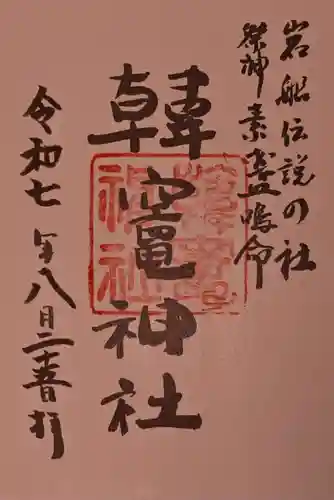 岩船伝説の社
祭神素盞嗚命
韓竈神社
令和七年八月二十一日拝